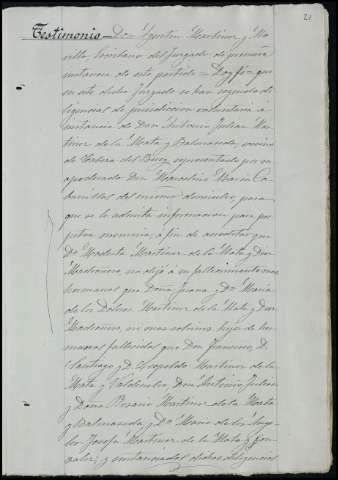 21
Testimonio = Dn. Agustin Martinez y
Escribano del Juzgado de primera
instancia de este partido = Doy fé = que
en este dicho Juzgado se han seguido di
ligencias de jurisdiccion voluntaria á
instancia de Don Antonio Julian Mar
tinez de la Mata y Balmaseda, vecino
de Cabeza del Buey representado por su
apoderado Don Marcelino Maria Ca
banillas del mismo domicilio, para
que se le admita informacion para per
petua memoria, á fin de acreditar que
Da. Modesta Martinez de la Mata y Diaz
Madroñero, no dejó á su fallecimiento mas
hermanos que Doña Juana y Da. Maria
de los Dolores Martinez de la Mata y Diaz
Madroñero, ni mas sobrinos hijos de her
manos fallecidos que Don Francisco, D.
Santiago y D. Leopoldo Martinez de la
Mata y Don Antonio Julian
y Doña Rosario Martinez de la Mata
y Balmaseda, y Da. Maria de los Ange
les Josefa Martinez de la Mata y Gon
zalez; y sustanciadas dichas diligencias